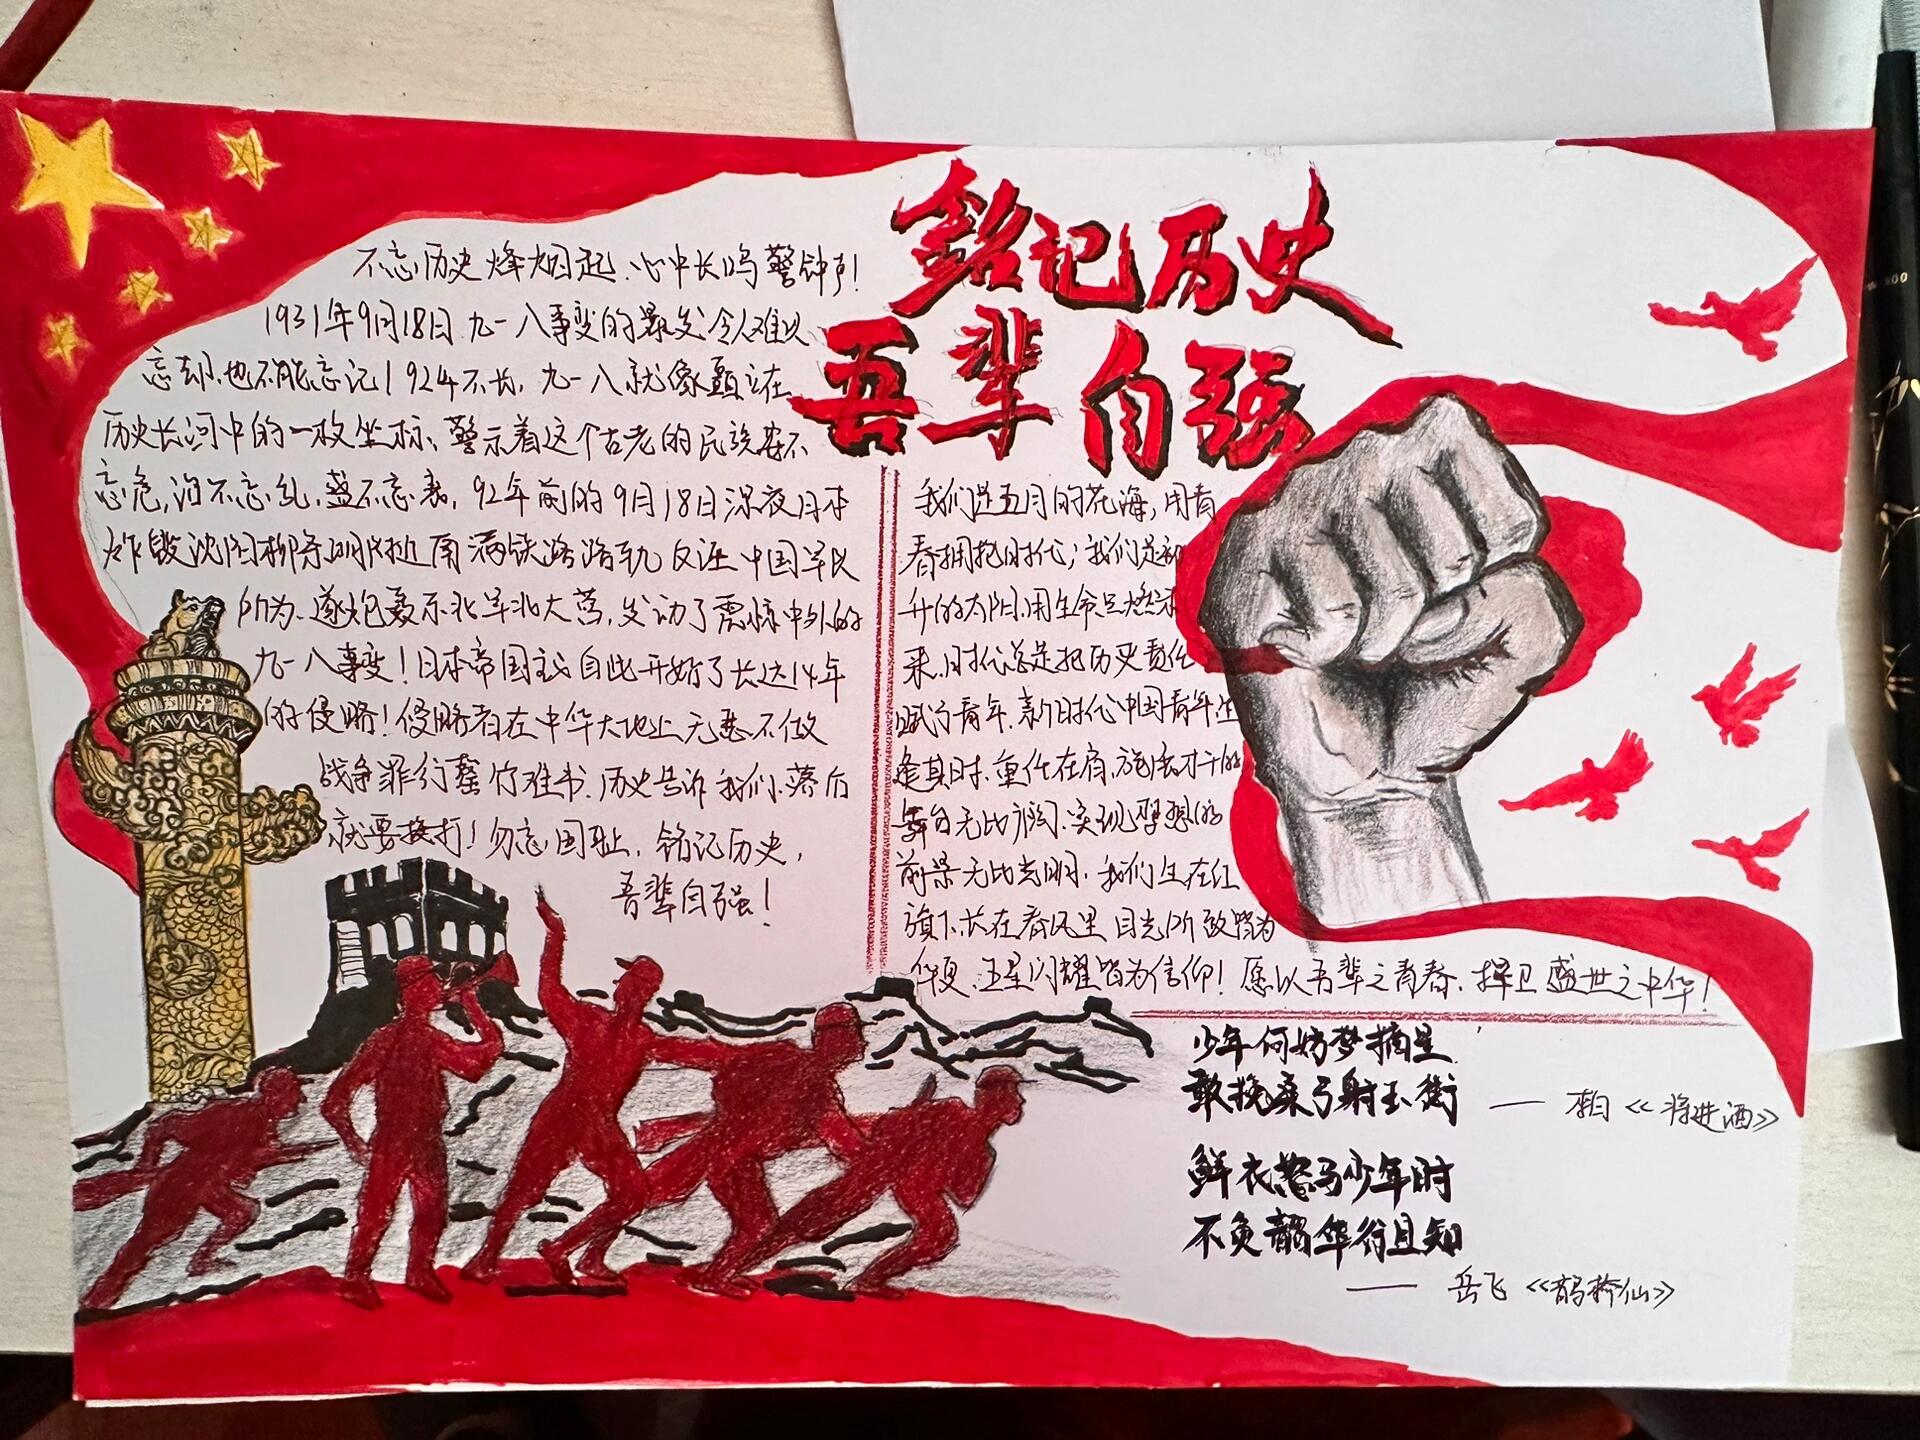 銘记历史
吾辈自强
不忘历史烽烟起、心中长鸣警钟声！
1931年9月18日.九一八事变的爆发令人难以
忘却、也不能忘记1924不长，九一八就像矗立在
历史长河中的一枚坐标、警示着这个古老的民族安不
忘危，治不忘乱，盛不忘衰，92年前的9月18日深夜日本
炸毁沈阳柳条湖附近南满铁路路轨反诬中国军队
所为、遂炮轰东北军北大营，发动了震惊中外的
九一八事变！日本帝国主义自此开始了长达14年
的侵略！侵略者在中华大地上无恶不做
战争罪行罄竹难书.历史告诉我们、落后
就要挨打！勿忘国耻，铭记历史，
吾辈自强！
我们是五月的花海，用青
春拥抱时代；我们是初
升的太阳、用生命点燃未
来，时代总是把历史责任
赋予青年.新时代中国青年生
逢其时、重任在肩，施展才干的
舞台无比广阔、实现梦想的
前景无比光明，我们生在红
旗下.长在春风里 目光所致皆为
华夏、五星闪耀皆为信仰！愿以吾辈之青春，捍卫盛世之中华！
少年何妨梦摘星
敢挽桑弓射玉衡 —— 李白《将进酒》
鲜衣怒马少年时
不负韶华行且知
—— 岳飞《鹊桥仙》